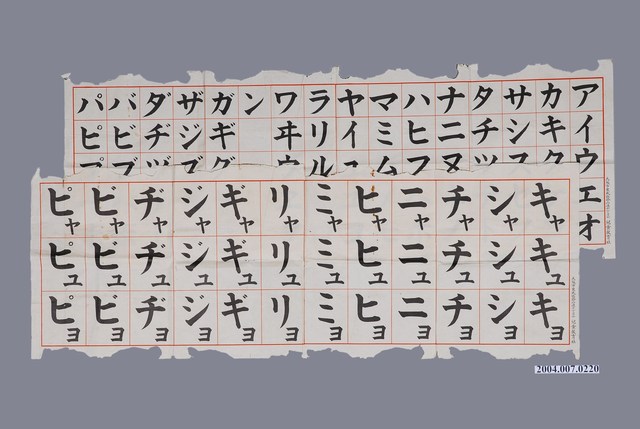 アイウエオ
カキク
サシ
タチツ
ナニヌ
ハヒフ
マミム
ヤイ
ラリル
ワヰウ
ン
ガギグ
ザジ
ダヂヅ
バビブ
パピプ
キャキュキョ
シャシュショ
チャチュチョ
ニャニュニョ
ヒャヒュヒョ
ミャミュミョ
リャリュリョ
ギャギュギョ
ジャジュジョ
ヂャヂュヂョ
ビャビュビョ
ピャピュピョ
2004.007.0220